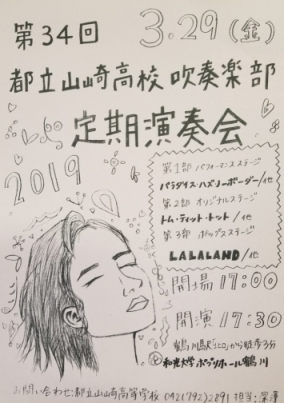 第34回 3.29(金)
都立山崎高校吹奏楽部
定期演奏会
2019
第1部 パフォーマンスステージ
パラダイス・ハズ・ノーボーダー/他
第2部 オリジナルステージ
トム・ティット・トット/他
第3部 ポップスステージ
LALALAND/他
開場 17:00
開演 17:30
鶴川駅北口から徒歩3分
和光大学ポプリホール鶴川
お問い合わせ:都立山崎高等学校 042(792)2891 担当: